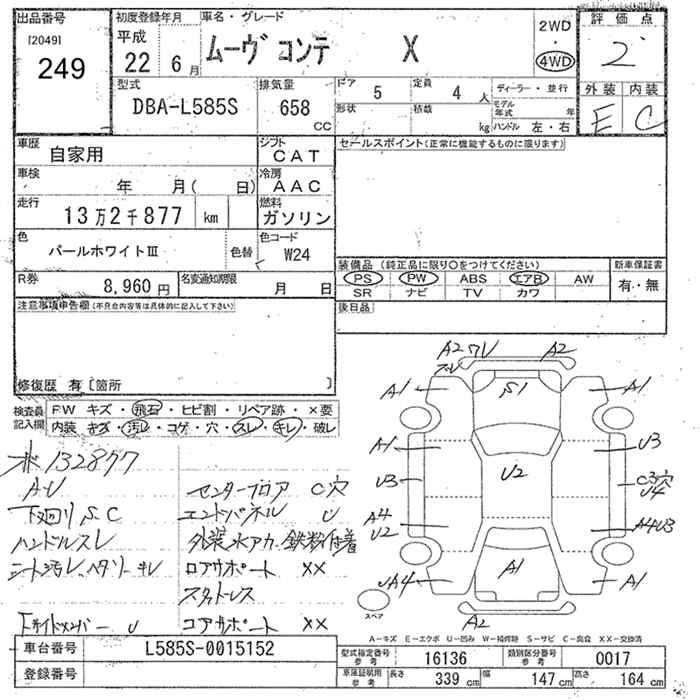 出品番号 初度登録年月 車名・グレード 2WD 評価点
[2049] 平成 ・
249 22年 6月 ムーヴ コンテ X 4WD 2
型式 排気量 ドア 5 定員 4人 ディーラー・並行 外装 内装
DBA-L585S 658 CC 形状 積載 kg モデル年式 年 E C
ハンドル 左・右
車歴 自家用 シフト CAT セールスポイント(正常に機能するものに限ります)
車検 年 月( 日) 冷房 AAC
走行 13万2千877 km 燃料 ガソリン
色 パールホワイトⅢ 色替 色コード W24
装備品 (純正品に限り○をつけてください) 新車保証書
R券 8,960円 名変通知期限 月 日 PS PW ABS エアB AW 有・無
SR ナビ TV カワ
注意事項申告欄(不具合内容等は具体的に記入して下さい) 後日品
修復歴 有 [箇所 ]
検査員記入欄 FW キズ・飛石・ヒビ割・リペア跡・×要
内装 キズ・汚レ・コゲ・穴・スレ・キレ・破レ
A2 ワレ A2
スレ
A1 S1 A1
A1 U3
U3 U2 C3穴
U4
A4 A4U3
U2
A1 A1
A2
スペア
132877
A・U センターフロア C穴
下廻り S.C エンドパネル U
ハンドルスレ 外装水アカ 鉄粉付着
シート汚レ、ヘタリ・キレ ロアサポート XX
スタットレス
コアサポート XX
A-キズ E-エクボ U-凹み W-補修跡 S-サビ C-腐食 XX-交換済
車台番号 L585S-0015152 型式指定番号 参考 16136 類別区分番号 参考 0017
登録番号 車庫証明用 参考 長さ 339 cm 幅 147 cm 高さ 164 cm